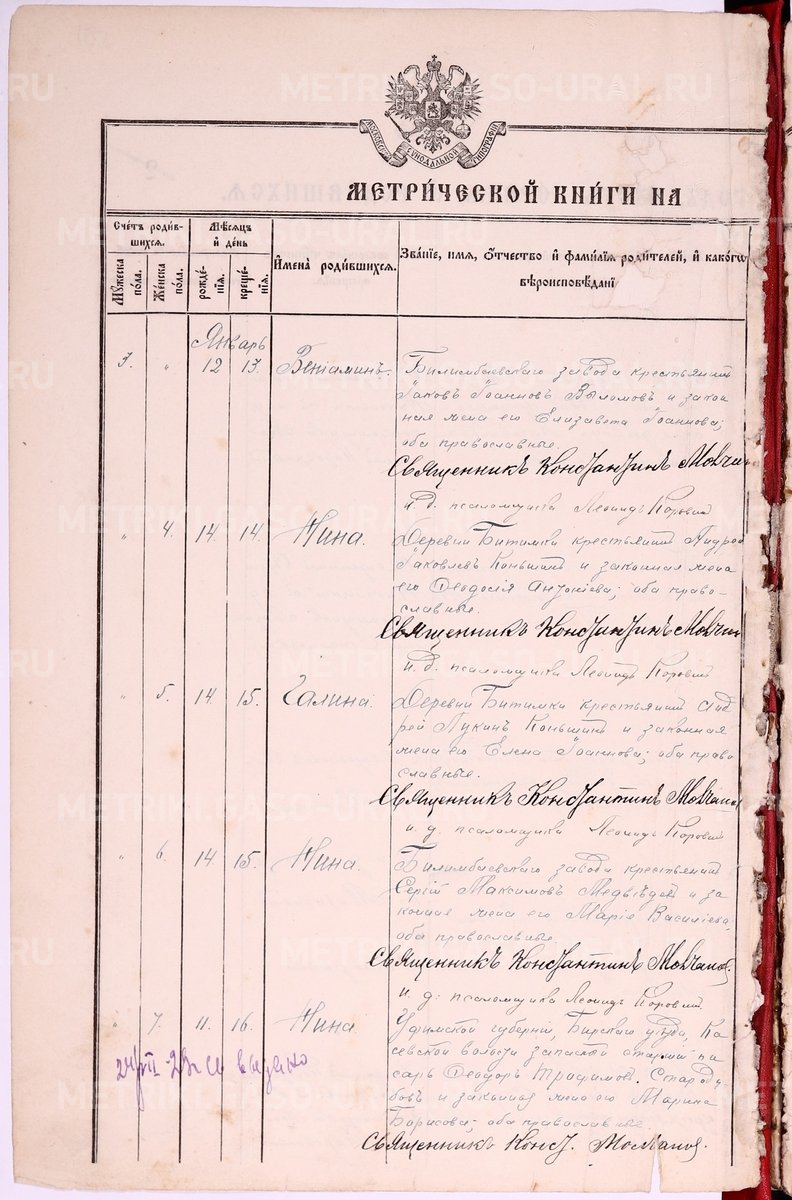 МОСКОВСКОЙ СѴНОДАЛЬНОЙ ТИПОГРАФІИ
МЕТРИ́ЧЕСКОЙ КНИ́ГИ НА
Сче́тъ роди́в-
шихся.
Мѣ́сяцъ
и҆ де́нь
И҆мена̀ роди́вшихся.
Зва́нїе, имя, ѻ҆́тчество и҆ фами́лїя роди́телей, и҆ како́гѡ
вѣроисповѣ́данї
Мꙋ́жеска
по́ла.
Же́нска
по́ла.
рожде́-
нїя.
креще́-
нїя.
Январь
3. " 12 13. Веніаминъ. Билимбаевскаго завода крестьянинъ
Іаковъ Іоанновъ и закон
ная жена его Елизавета Іоаннова;
оба православные.
Священникъ Константинъ Молчан
и. д. псаломщика Леонидъ Коровин
" 4. 14 14. Нина. Деревни Битимки крестьянинъ Андрей
Іаковлевъ Коньшинъ и законная жена
его Ѳеодосія Антоніева; оба право-
славные.
Священникъ Константинъ Молчан
и. д. псаломщика Леонидъ Коровин
" 5. 14 15. Галина. Деревни Битимки крестьянинъ Анд
рей Лукинъ Коньшинъ и законная
жена его Елена Іоаннова; оба право
славные.
Священникъ Константинъ Молчанов
и. д. псаломщика Леонидъ Коровин
" 6. 14 15. Нина. Билимбаевскаго завода крестьянинъ
Сергій Максимовъ Медвѣдевъ и за
конная жена его Марія Василіева,
оба православные.
Священникъ Константинъ Молчанов.
и. д. псаломщика Леонидъ Коровин
" 7. 11. 16. Нина Уфимской губерніи, Бирскаго уѣзда, Ка
севской волости запасной старшій пи
сарь Ѳеодоръ Трифимов. Староду
бовъ и законная жена его Марина
Борисова; оба православные.
выдано
Священникъ Конст. Молчанов.